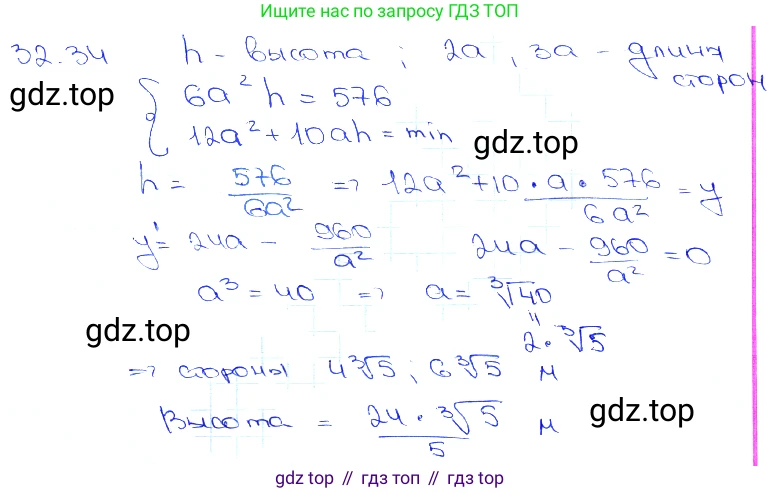 Ищите нас по запросу ГДЗ ТОП
32.34 h - высота ; 2a , 3a - длина сторон
gdz.top
{ 6a² h = 576
12a² + 10ah = min
gdz.top
h = 576/6a² => 12a² + 10 · a · 576/6a² = y
y' = 24a - 960/a² 24a - 960/a² = 0
a³ = 40 => a = ∛40
=
2 · ∛5
gdz.top
=> стороны 4∛5 ; 6∛5 м
Высота = 24 · ∛5/5 м
gdz.top
gdz top // гдз топ // gdz top